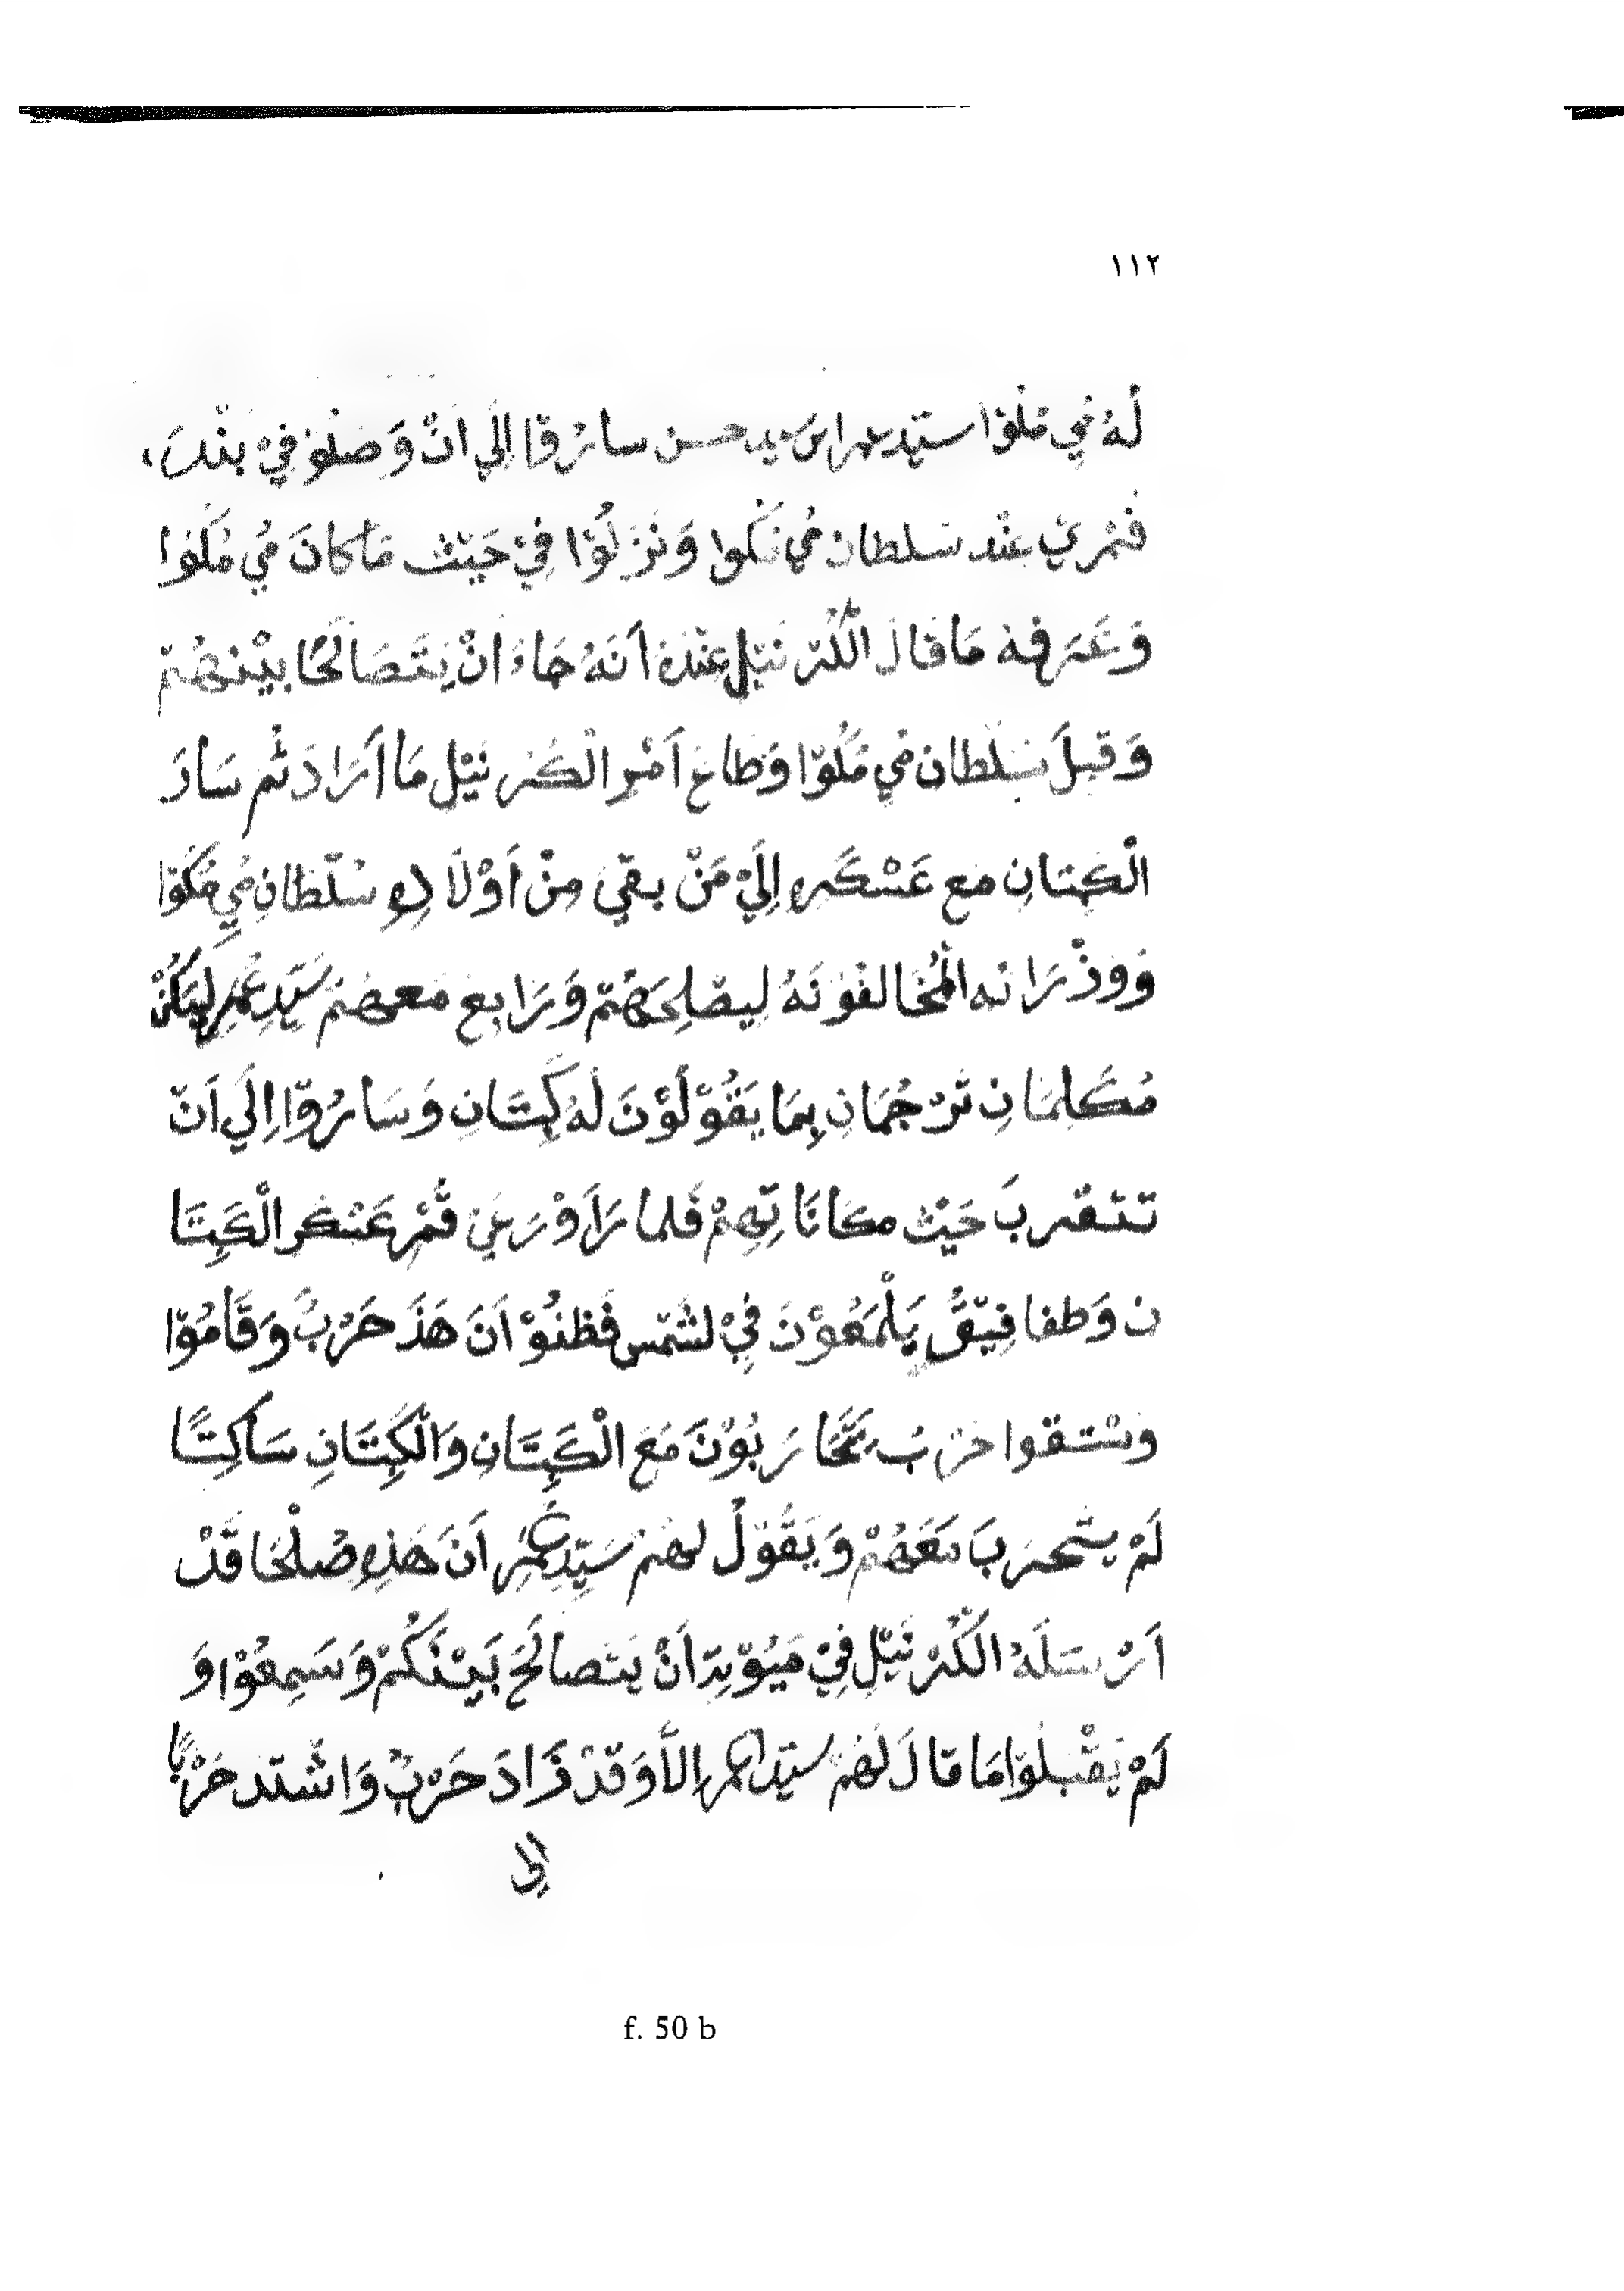 ١١٢
لَهُ مُي مْلوْا سيّد عمر ابن سيد حسن سارُ قا اِلَي اَنَّ وَصَلُوْ فِيْ بنْدَرَ،
فمْريّ عنْد سَلطان مُي مُكُوا وَنَزَلُوْا فِيْ حَيْثُ مَا كَانَ مُي مُكُوْا
وَعَرَفِهُ مَا قَالَ الْكُرْنَيْل عِنْدَهُ اَنَهُ جَاءَ اَنْ يَتَصَالَحًا بيْنهُمْ
وَقبِلَ سُلْطان مُي مُكُوْا وَطَاعَ اَمْرِ الْكُرنَيْل مَا اَرَادَ ثُم سَارَ
الْكَبِتَانِ مَع عَسْكَرِهِ اِلَيْ مَنْ بقيَ مِنْ اَوْلَادِهِ سُلْطَانِ مُي مُكُوْا
وَوُذْرَانه الْمُخَالفُوْنَهُ لِيصْلِحَهُمْ وَرَابعَ مَعهمْ سَيّدِ عُمَر لِيَكُنْ
مُكَلِمَانِ تَرْجُمَانِ بِمَا يَقُوْلُوْنَ لَهُ كَبِتَانِ وَسَارُوْا اِلَي اَنّ
تتقربَ حَيْثُ مكانَاتِهِمْ فَلما رَاَوْ رَيْنِ قُمْر عَسْكر الْكَبِتَا
ن وَطفافيْقُ يَلْمَعُوْنَ فِيْ لشَمْس فظنُوْ اَنَ هَذَ حَرْبً وَقَامُوْا
وَسْتقوا حَرْبُ يَتَّحَارَبُوْنَ مَعَ الْكَبِتَانِ وَالْكَبِتَانِ سَاكِتًا
لَمْ يتحرَبَ مَعَهُمْ وَيَقُوْلُ لهُمْ سَيّدِ عُمَرِ اَنَ هَذِهِ صُلْحًا قَدْ
اَرْسَلَهُ الْكُرْنَيْلِ فِيْ مَيُوْتِ اَنْ يَتَصَالَحَ بَيْنَكُمْ وَسَمِعُوْا وَ
لَمْ يَقْبلوْا مَا قالَ لَهُمْ سَيّد عُمَر اِلاَّ وَقَدْ زَادَ حَرْبٌ وَاشْتَد حَرْبًا
اِلَي
f. 50 b